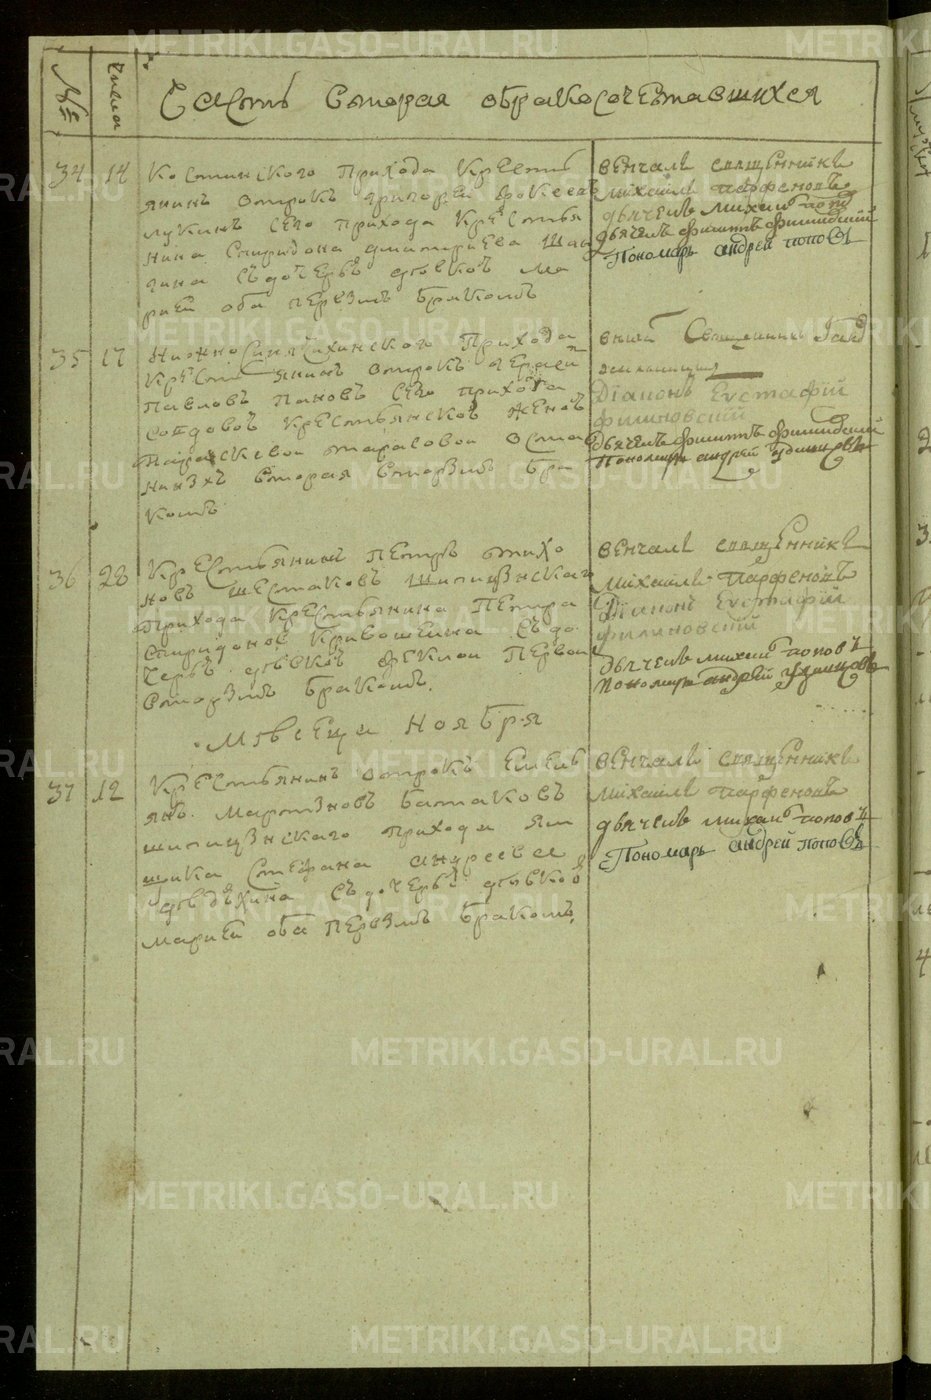 №
числа
Часть вторая обракосочетавшихся
34 14 Костинского прихода кресть
янинъ отрокъ григорей вокеевъ
лукинъ сего прихода крестья
нина Спиридона дмитриева
съ дочерью девкой ма
рией оба первымъ бракомъ
венчалъ священникъ
михаилъ парфеновъ
дьячекъ михаилъ поповъ
дьячекъ филиппъ
Пономарь андрей поповъ
35 17 Нижно Синячихинского Прихода
крестьянинъ отрокъ
павловъ пановъ сего прихода
вдовой крестьянской женой
параскевой тарасовой
вторая вторымъ бра
комъ
Священникъ
Дiаконъ Евстафiй
филиновский
Дьячекъ филиппъ
Пономарь андрей удинцовъ
36 28 Крестьянинъ петръ тихо
новъ шестаковъ шипицынскаго
прихода крестьянина Петра
спиридонова кривошеина съ до
черью девкой феклой первой
вторымъ бракомъ.
венчалъ священникъ
михаилъ парфеновъ
Дiаконъ Евстафiй
филиновский
дьячекъ михаилъ поповъ
Пономарь андрей удинцовъ
Месеца Ноября
37 12 Крестьянинъ отрокъ Емель
янъ мартыновъ батаковъ
шипицынскаго прихода ям
щика Стефана андреева
съ дочерью девкой
марией оба первымъ бракомъ.
венчалъ священникъ
михаилъ парфеновъ
дьячекъ михаилъ поповъ
Пономарь андрей поповъ
METRIKI.GASO-URAL.RU